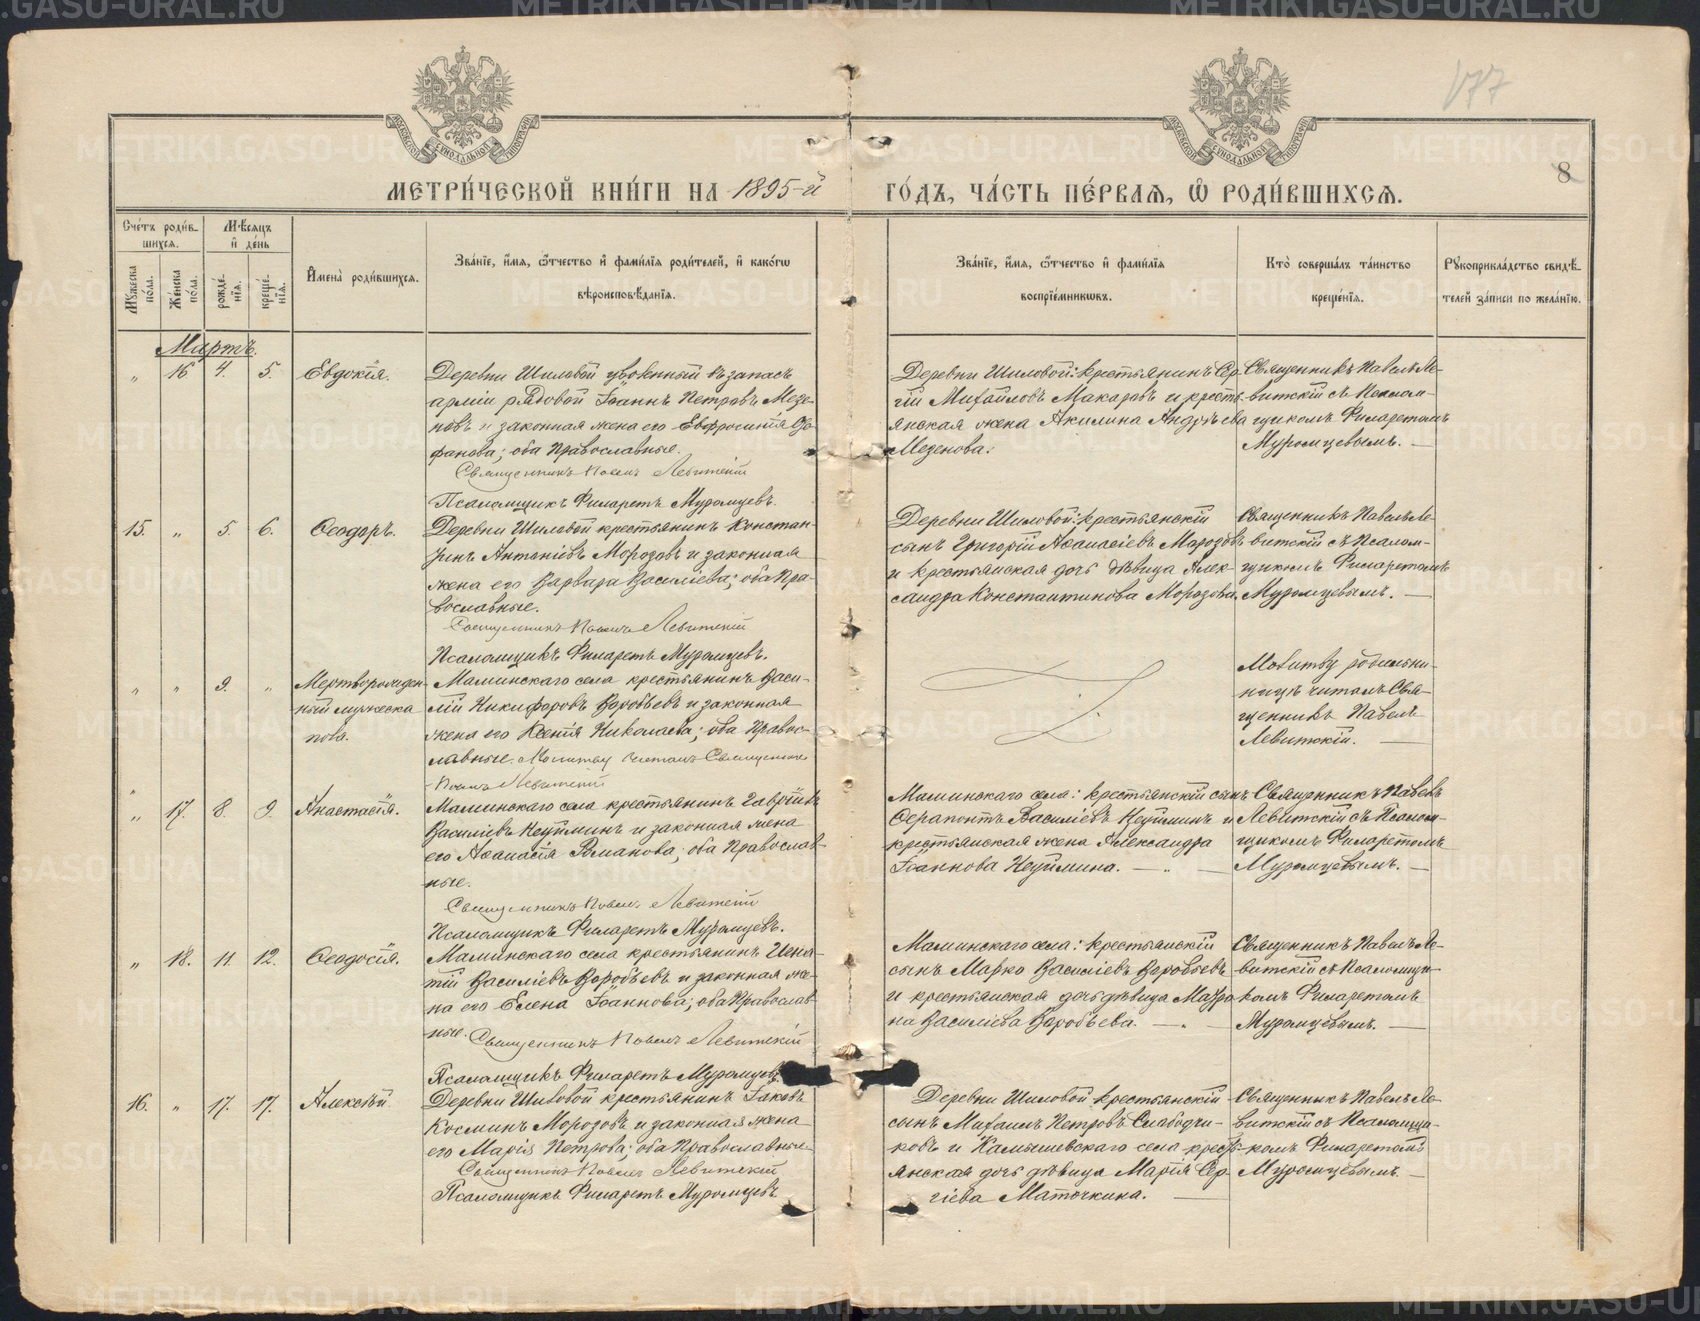 177
8
МОСКОВСКОЙ СѴНОДАЛЬНОЙ ТИПОГРАФІИ
МОСКОВСКОЙ СѴНОДАЛЬНОЙ ТИПОГРАФІИ
МЕТРИ́ЧЕСКОЙ КНИ́ГИ НА 1895-й ГО́ДЪ, ЧА́СТЬ ПЕ́РВАЯ, Ѡ РОДИ́ВШИХСЯ.
Сче́тъ роди́в-
шихся.
Мѣсяцъ
и де́нь
Мꙋ́жеска по́ла.
Же́нска по́ла.
рожде́-
нїя.
креще́-
нїя.
И҆мена̀ роди́вшихся.
Зва́нїе, и҆́мя, ѻ҆́тчество и҆ фами́лїя роди́телей, и҆ како́гѡ
вѣроисповѣ́данїя.
Зва́нїе, и҆́мя, ѻ҆́тчество и҆ фами́лїя
воспрїе́мникѡвъ.
Кто̀ соверша́лъ та́инство
креще́нїя.
Рꙋкоприкла́дство свидѣ́-
телей за́писи по жела́нїю.
Мартъ.
„ 16 4. 5. Евдокія.
Деревни Шиловой уволенный въ запасъ
арміи рядовой Іоаннъ Петровъ Мезе-
новъ и законная жена его Евфросинія
фанова; оба Православные.
Священникъ Павелъ Левитскій
Псаломщикъ Филаретъ Муромцевъ.
Деревни Шиловой: крестьянинъ Сер-
гій Михайловъ Макаровъ и кресть-
янская жена Акилина Андреева
Мезенова.
Священникъ Павелъ Ле-
витскій съ Псалом-
щикомъ Филаретомъ
Муромцевымъ. —
15. „ 5. 6. Ѳеодоръ.
Деревни Шиловой крестьянинъ Констан-
тинъ Антоніевъ Морозовъ и законная
жена его Варвара Василіева; оба Пра-
вославные.
Священникъ Павелъ Левитскій
Псаломщикъ Филаретъ Муромцевъ.
Деревни Шиловой: крестьянскій
сынъ Григорій Аѳанасіевъ Морозовъ
и крестьянская дочь дѣвица Алек-
сандра Константинова Морозова.
Священникъ Павелъ Ле-
витскій съ Псалом-
щикомъ Филаретомъ
Муромцевымъ. —
„ „ 9. „ Мертворожден-
ный мужеска
пола.
Маминскаго села крестьянинъ Васи-
лій Никифоровъ Воробьевъ и законная
жена его Ксенія Николаева; оба Правос-
лавные. Молитву читалъ Священникъ
Павелъ Левитскій
Молитву родильни-
ницѣ читалъ Свя-
щенникъ Павелъ
Левитскій. —
„ 17. 8. 9. Анастасія.
Маминскаго села крестьянинъ Гавріилъ
Василіевъ Неуйминъ и законная жена
его Аѳанасія Романова; оба Православ-
ные.
Священникъ Павелъ Левитскій
Псаломщикъ Филаретъ Муромцевъ.
Маминскаго села: крестьянскій сынъ
Серапонтъ Василіевъ Неуйминъ и
крестьянская жена Александра
Іоаннова Неуймина. — „ —
Священникъ Павелъ
Левитскій съ Псалом-
щикомъ Филаретомъ
Муромцевымъ. —
„ 18. 11. 12. Ѳеодосія.
Маминскаго села крестьянинъ Игна-
тій Василіевъ Воробьевъ и законная же-
на его Елена Іоаннова; оба Православ-
ные. Священникъ Павелъ Левитскій
Псаломщикъ Филаретъ Муромцевъ
Маминскаго села: крестьянскій
сынъ Марко Василіевъ Воробьевъ
и крестьянская дочь дѣвица Матро-
на Василіева Воробьева. — „ —
Священникъ Павелъ Ле-
витскій съ Псаломщи-
комъ Филаретомъ
Муромцевымъ. —
16. „ 17. 17. Алексѣй.
Деревни Шиловой крестьянинъ Іаковъ
Косминъ Морозовъ и законная жена
его Марія Петрова; оба Православные
Священникъ Павелъ Левитскій
Псаломщикъ Филаретъ Муромцевъ.
Деревни Шиловой крестьянскій
сынъ Михаилъ Петровъ Слабодчи-
ковъ и Камышевскаго села кресть-
янская дочь дѣвица Марія Сер-
гіева Маточкина. —
Священникъ Павелъ Ле-
витскій съ Псаломщи-
комъ Филаретомъ
Муромцевымъ. —
METRIKI.GASO-URAL.RU